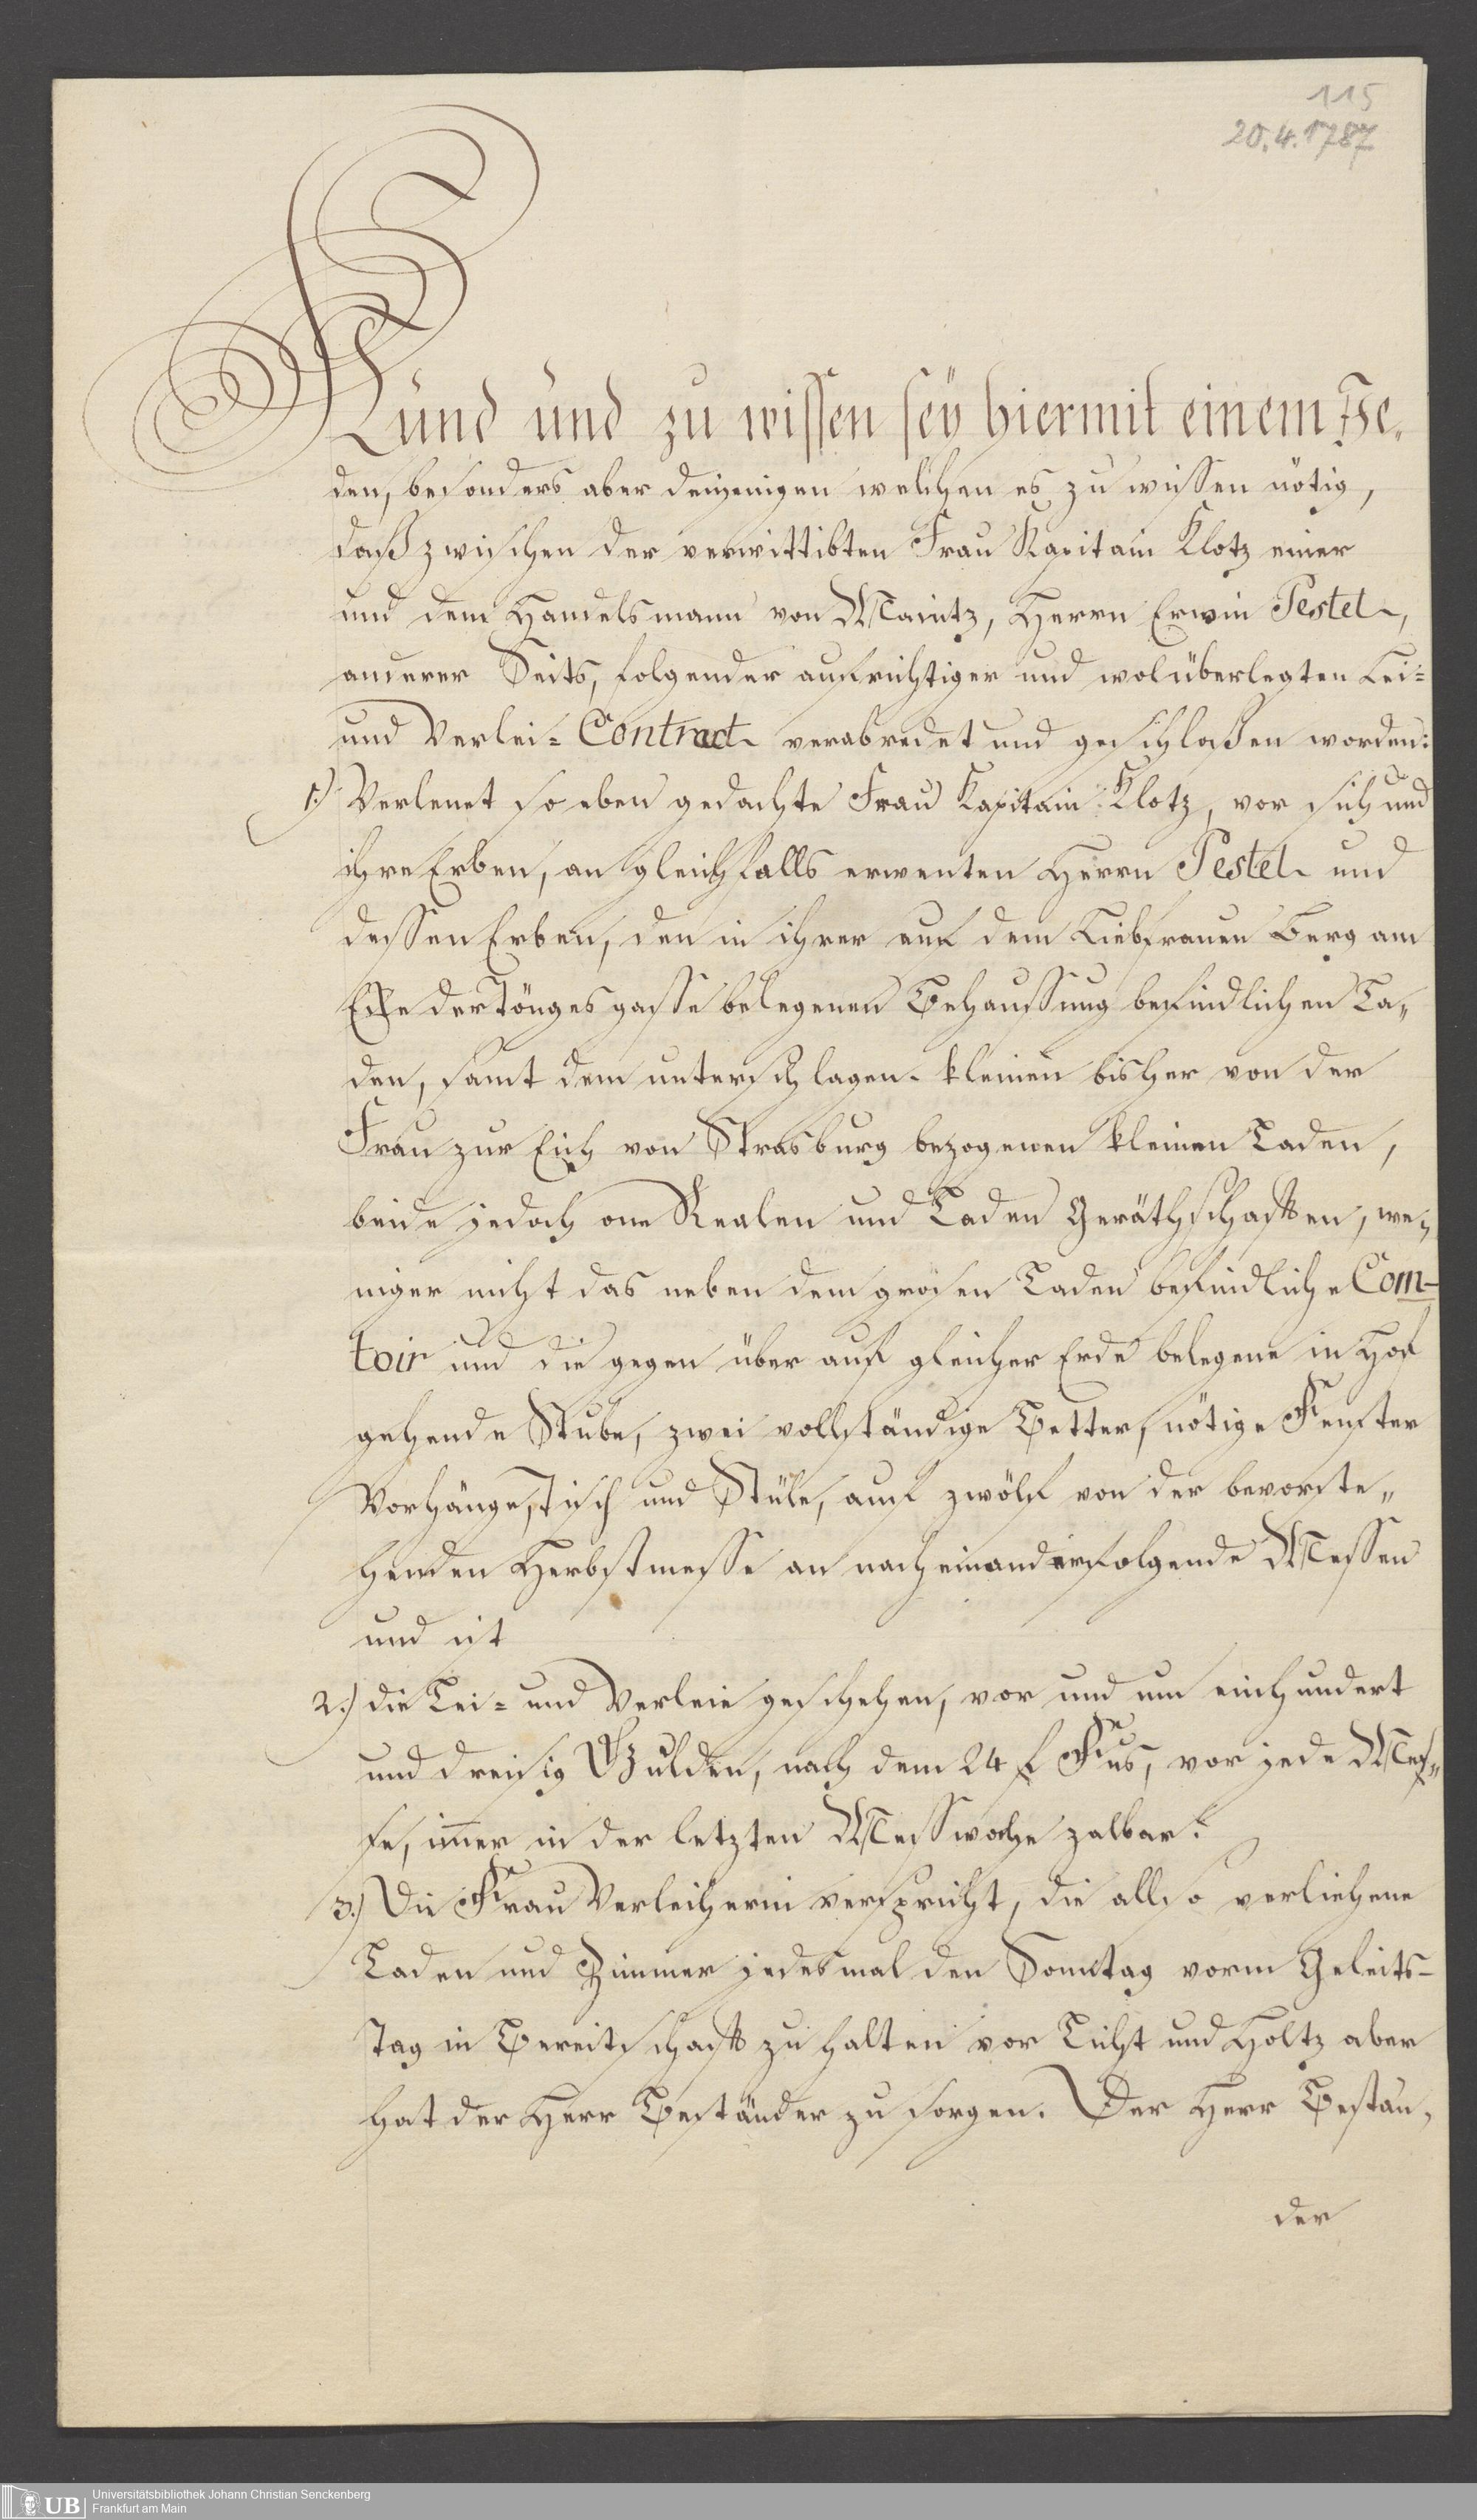 115
20.4.1787
Kund und zu wissen seÿ hiermit einem Je,
den, besonders aber denjenigen welchen es zu wissen nötig,
daß zwischen der verwittibten Frau Kapitain Klotz einer
und dem Handelsmann von Maintz, Herrn Erwin Pestel,
anderer Seits, folgender aufrichtiger und wolüberlegten Lei=
und Verlei= Contract verabredet und geschloßen worden:
1.) Verlenet so eben gedachte Frau Kapitain Klotz, vor sich und
ihre Erben, an gleichfalls erwenten Herrn Pestel und
dessen Erben, den in ihrer auf dem Liebfrauen Berg am
Eke der Töngesgasse belegenen Behaussung befindlichen La„
den, samt dem unterschlagen. kleinen bisher von der
Frau zur Eich von Strasburg bezogenen kleinen Laden,
beide jedoch one Realen und Laden Geräthschaften, we„
niger nicht das neben dem grosen Laden befindliche Com-
toir und die gegen über auf gleicher Erde belegene in Hof
gehende Stube, zwei vollständige Better, nötige Fenster
Vorhänge, Tisch und Stüle, auf zwölf von der bevorste„
henden Herbstmesse an nach einanderfolgende Messen
und ist
2.) die Lei= und Verleie geschehen, vor und um einhundert
und dreisig Gulden, nach dem 24 f Fus, vor jede Mes„
se, immer in der letzten Messwoche zalbar.
3.) Die Frau Verleiherin verspricht, die also verliehene
Laden und Zimmer jedesmal den Sonntag vorm Geleits-
Tag in Bereitschaft zu halten vor Licht und Holtz aber
hat der Herr Beständer zu sorgen. Der Herr Bestän,
der
UB
Universitätsbibliothek Johann Christian Senckenberg
Frankfurt am Main